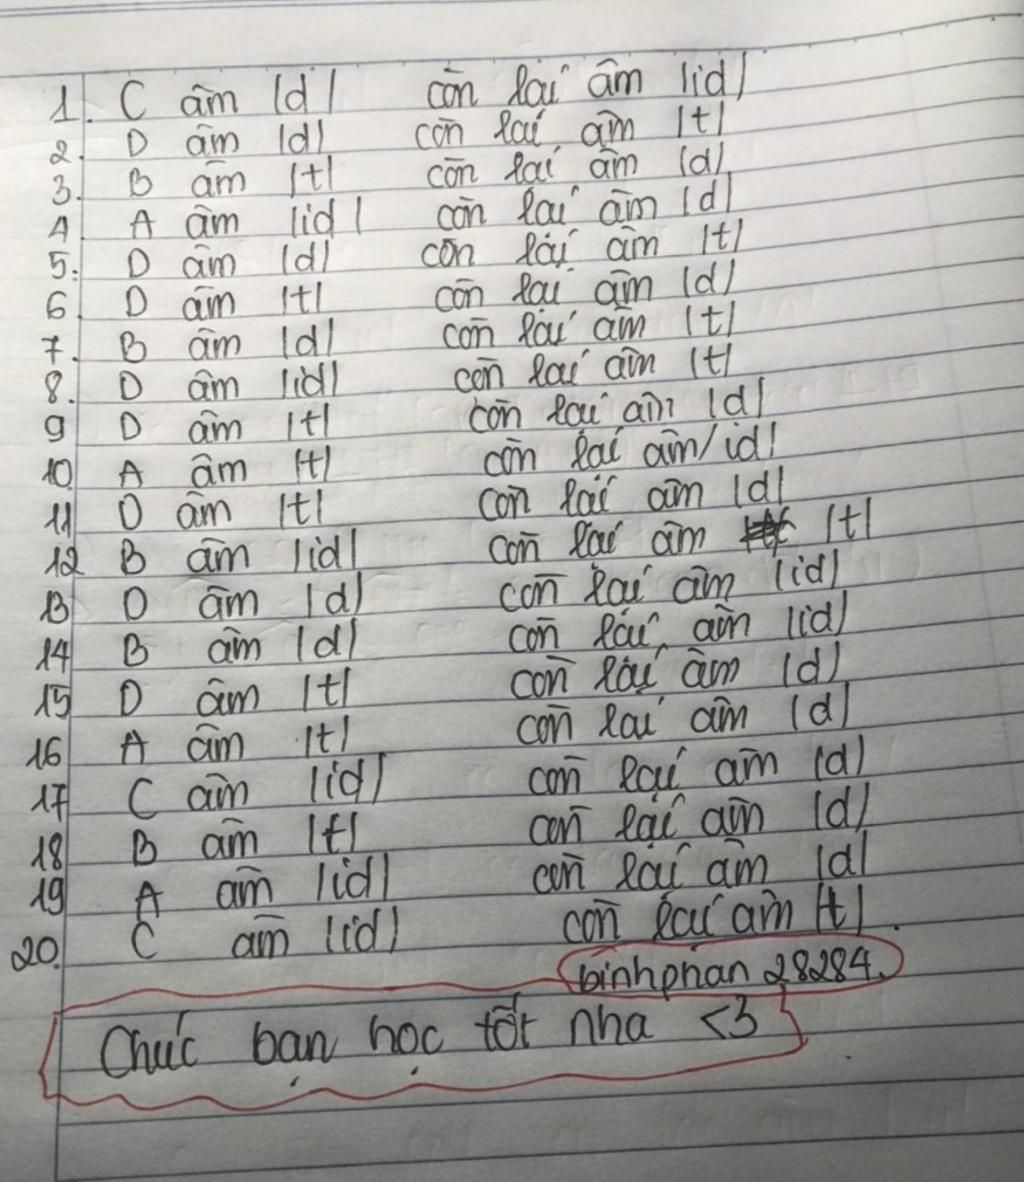 1. C âm /d/ còn lại âm /id/
2. D âm /d/ còn lại âm /t/
3. B âm /t/ còn lại âm /d/
4 A âm /id/ còn lại âm /d/
5. D âm /d/ còn lại âm /t/
6 D âm /t/ còn lại âm /d/
7. B âm /d/ còn lại âm /t/
8. D âm /id/ còn lại âm /t/
9 D âm /t/ còn lại âm /d/
10 A âm /t/ còn lại âm /id/
11 D âm /t/ còn lại âm /d/
12 B âm /id/ còn lại âm /t/
13 D âm /d/ còn lại âm /id/
14 B âm /d/ còn lại âm /id/
15 D âm /t/ còn lại âm /d/
16 A âm /t/ còn lại âm /d/
17 C âm /id/ còn lại âm /d/
18 B âm /t/ còn lại âm /d/
19 A âm /id/ còn lại âm /d/
20. C âm /id/ còn lại âm /t/
binhphan 28284.
Chúc bạn học tốt nha <3